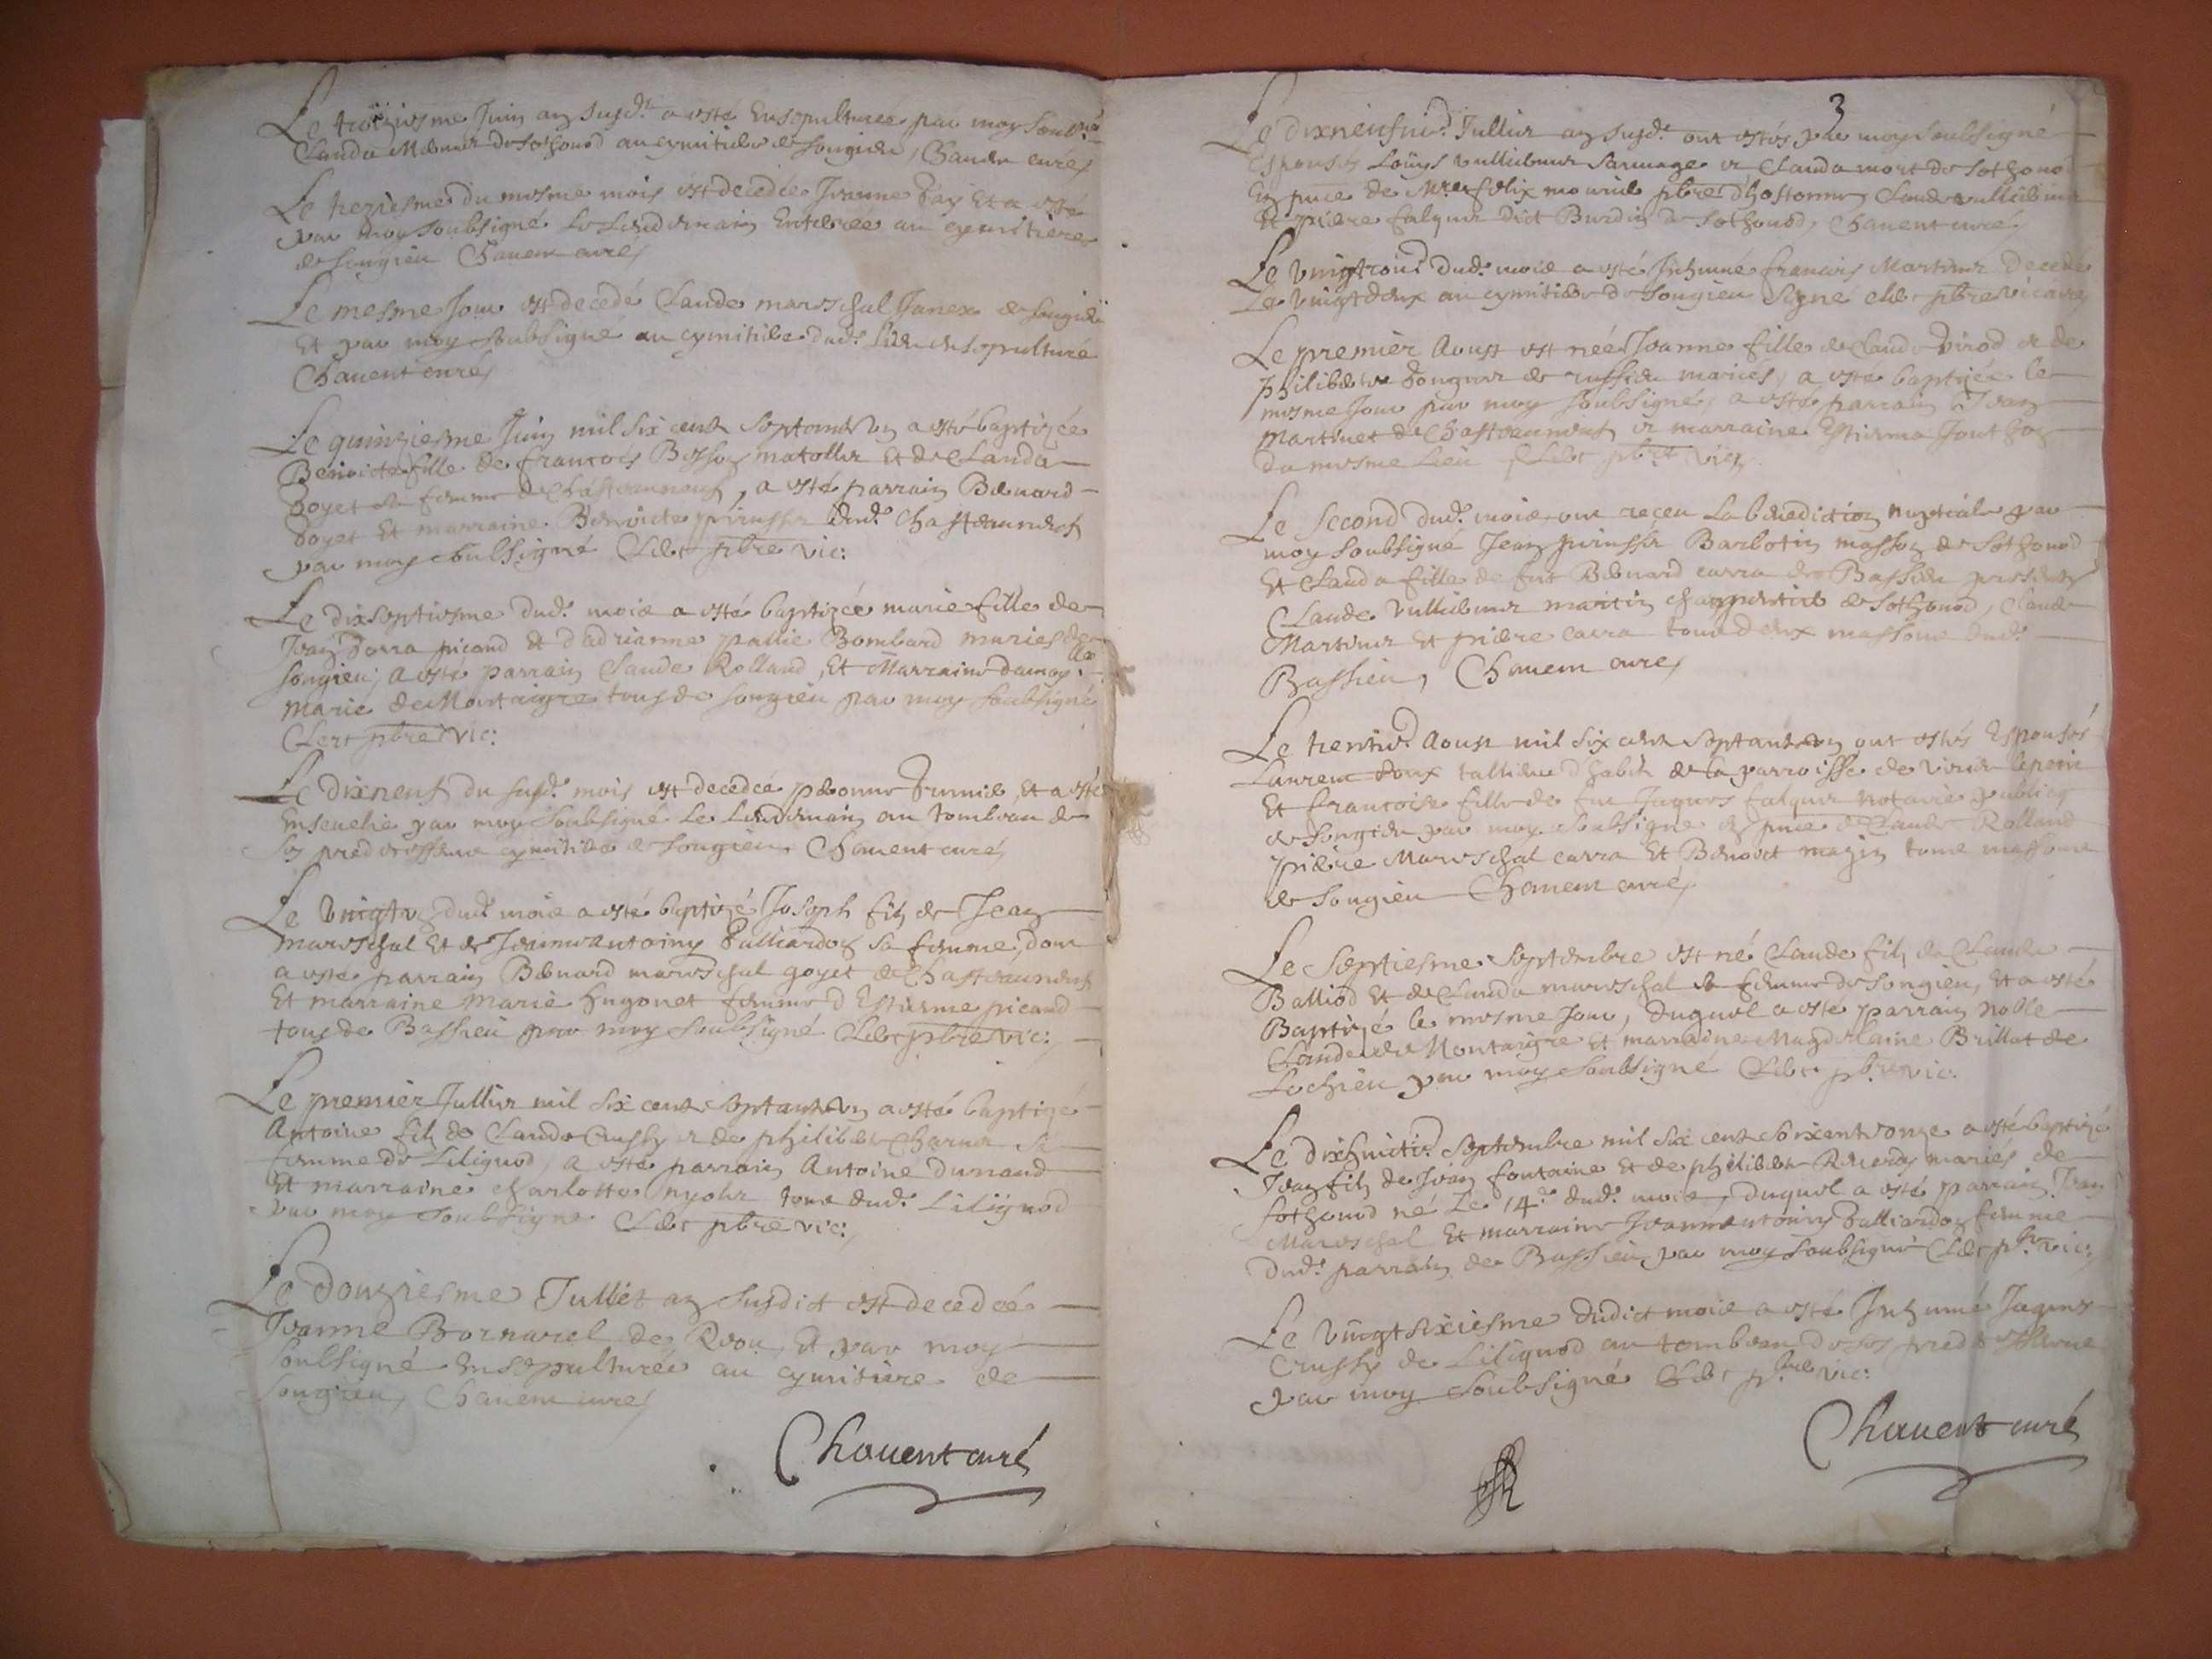 Le troiziesme Juin an susd.t a esté ensepulturée par moy soubs.né
Clauda Mesnier de Sothonod au cymitiere de Songieu, Chauent curé
Le treziesme du mesme mois est decedée Jeanne Fay et a esté
par moy soubsigné le lendemain enterrée au cymitiere
de Songieu Chauent curé
Le mesme jour est decedé Claude mareschal Janex de Songieu
Et par moy soubsigné au cymitiere dud.t lieu ensepulturé
Chauent curé
Le quinziesme Juin mil six cent septante un a esté baptizée
Benoicte fille de francois Besson matollir et de Clauda
goyet sa femme de Chasteauneuf, a esté parrain Bernard
goyet Et marraine Benoicte dud.t Chasteauneuf
par moy soubsigné Clerc pbre vic:
Le dixseptiesme dud.t mois a esté baptizée marie fille de
Jean picand et d'adrianne pallie Bombard mariés de
songieu, a esté parrain Claude Rolland, Et Marraine damoy.lle
Marie de Montaigre tous de songieu par moy soubsigné
Clerc pbre vic:
Le dixneuf du susd.t mois est decedée peronne, et a esté
enseuelie par moy soubsigné Le Lendemain au tombeau de
ses predecesseurs cymitiere de Songieu. Chauent curé
Le vingt un dud.t mois a esté baptizé Joseph filz de Jean
mareschal Et de Jeanne antoiny Balliardoz sa femme, dont
a esté parrain Bernard mareschal goyet de Chasteauneuf
Et marraine Marie hugonet femme d'Estienne picand
tous de Bassieu par moy soubsigné Clerc pbre vic:
Le premier Jullier mil six cent septante un a esté baptizé
Antoine filz de Claude Crussy et de philiberte Charuet sa
femme de Lilignod, a esté parrain Antoine Dunand
Et marraine charlotte tous dud.t Lilignod
par moy soubsigné Clerc pbre vic:
Le douziesme Julliet an susdict est decedée
Jeanne Bornarel de Et par moy
soubsigné ensepulturée au cymitiere de
Songieu, Chauent curé
Chauent curé
3
Le dixneufui.e Jullier an susd.t ont estés par moy soubsigné
espousés Loüys Vulliermer et Clauda mort de Sothonod
en pnce de M.re felix pbre d'hostonne, Claude Vulliermer
Et pierre falquet dict Burdin de Sothonod, Chauent curé.
Le vingtrois.e dud.t mois a esté inhumé francois Martinet decedé
Le vingt deux au cymitiere de Songieu signé Clerc pbre vicaire
Le premier Aoust est née Jeanne fille de Claude Virod et de
philiberte de russieu mariés, a esté baptizée le
mesme jour par moy soubsigné, a esté parrain Jean
Martinet de Chasteauneuf et marraine Estienna
du mesme Lieu Clerc pbre vic:
Le second dud.t mois ont receu La benediction nuptiale par
moy soubsigné Jean Barlotin masson de Sothonod
Et Clauda fille de fut Bernard carra de Bassieu presents
Claude Vulliermer martin charpentier de Sothonod, Claude
Martinet et pierre carra tous deux massons dud.t
Bassieu, Chauent curé
Le trentie.e Aoust mil six cent septante un ont estés espousés
Laurent doux tallieur d'habits de la parroisse de virieu lepetit
Et francoise fille de fut Jaques falquet notaire publicq
de Songieu par moy soubsigné en pnce de Claude Rolland
pierre Mareschal carra Et Benoict magin tous massons
de Songieu Chauent curé
Le septiesme Septembre est né Claude filz de Claude
Balliod Et de Clauda mareschal sa femme de Songieu, Et a esté
Baptizé le mesme jour, duquel a esté parrain Noble
Claude de Montaigre Et marraine Magdelaine Brillat de
Lochieu par moy soubsigné Clerc pbre vic:
Le dixhuiti.e Septembre mil six cent soixante onze a esté baptizé
Jean filz de Jean fontaine Et de philiberte mariés de
Sothonod né Le 14.e dud.t mois, duquel a esté parrain Jean
Mareschal Et marraine Jeanne antoiny Balliardoz femme
dud.t parrain de Bassieu, par moy soubsigné Clerc pbre vic:
Le vingtsixiesme dudict mois a esté inhumé Jaques
Crussy de Lilignod au tombeau de ses predecesseurs
par moy soubsigné Clerc pbre vic:
Chauent curé